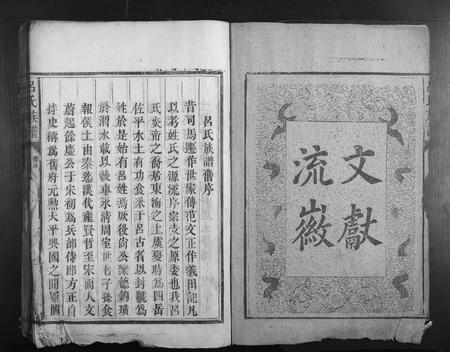 文獻
流徽
呂氏族譜舊序
昔司馬遷作世家傳范文正作義田記凡
以為姓氏之源流序宗支之原委也我呂
氏炎帝之裔居東海之上虞夏時為四岳
佐平水土有功食采于呂古者以封號為
姓於是始有呂姓焉厥後尚公
於渭水載以後車永清周室世世子孫食
報侯土由秦迄漢代產賢哲至宋而人文
蔚起餘慶公于宋初為兵部侍郎方正自
持史稱為舊府元勳太平興國之間
呂氏族譜